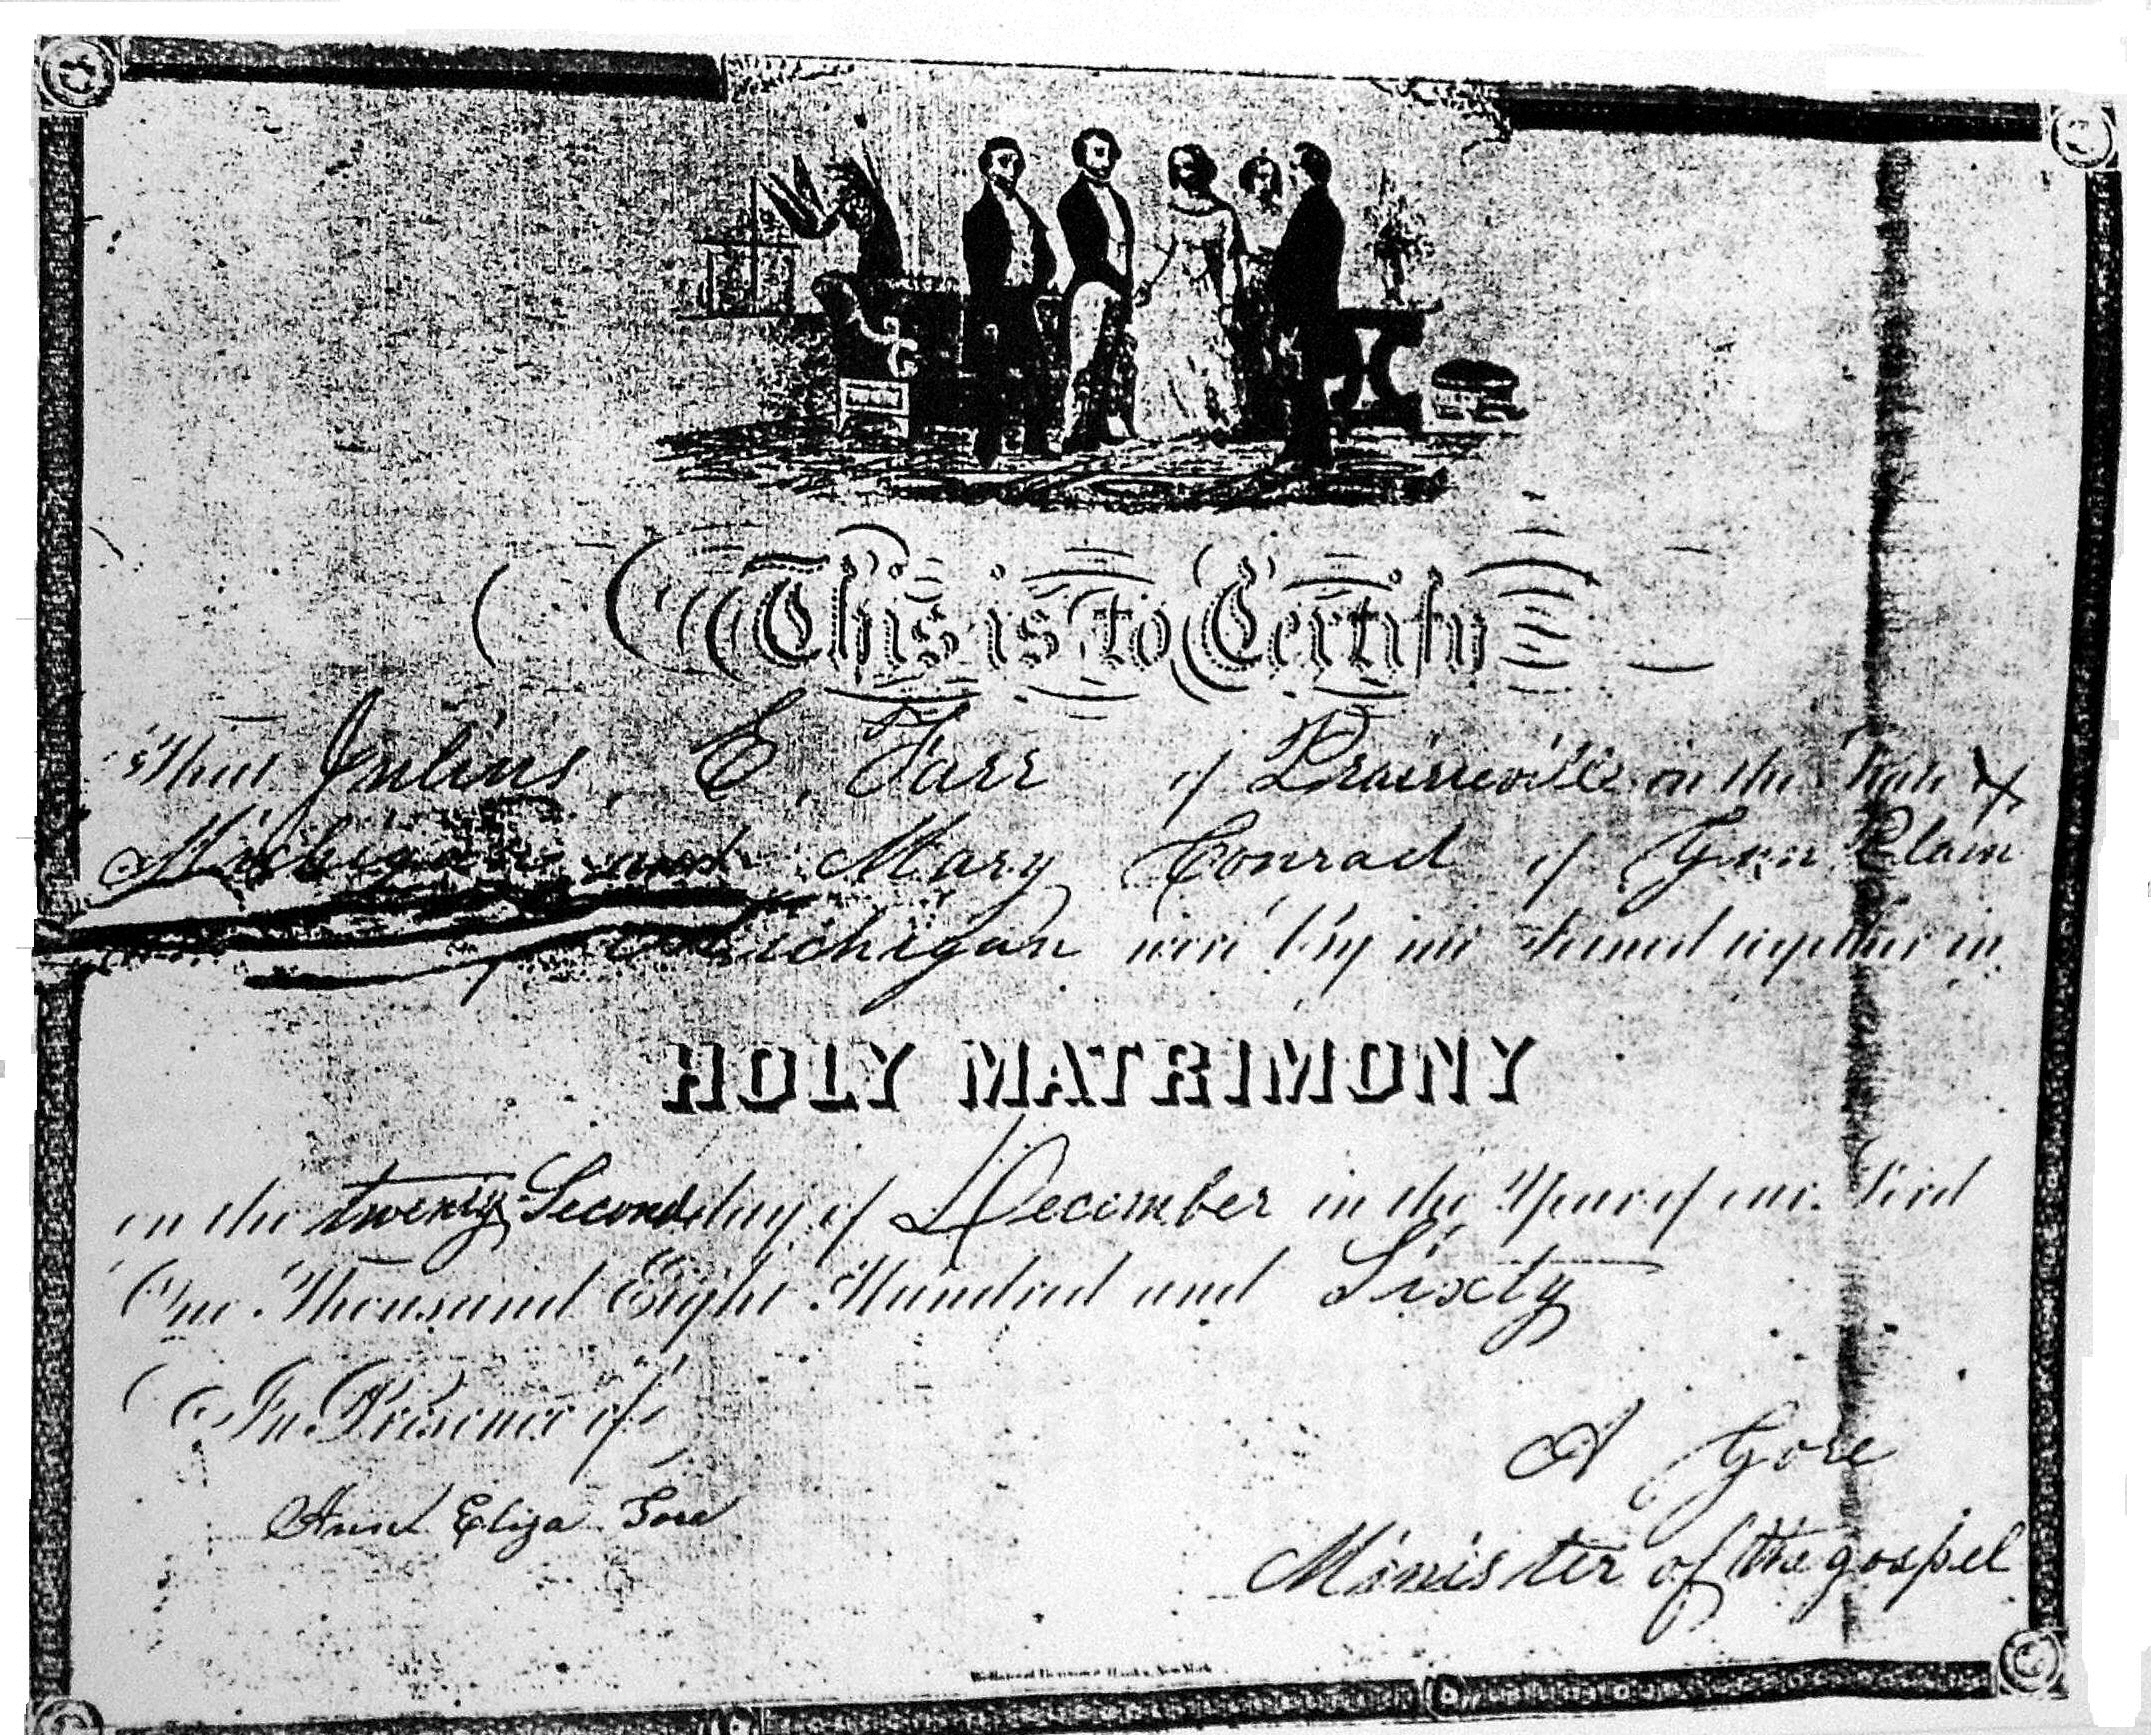 This is to Certify
That Julius. E. Farr of Prairieville in the State of
Michigan and Mary Conrad of Gun Plain
Michigan were by me joined together in
HOLY MATRIMONY
on the twenty Second day of December in the Year of our Lord
One Thousand Eight Hundred and Sixty
In Presence of
A Gore
Ann Eliza
Minister of the gospel
New York